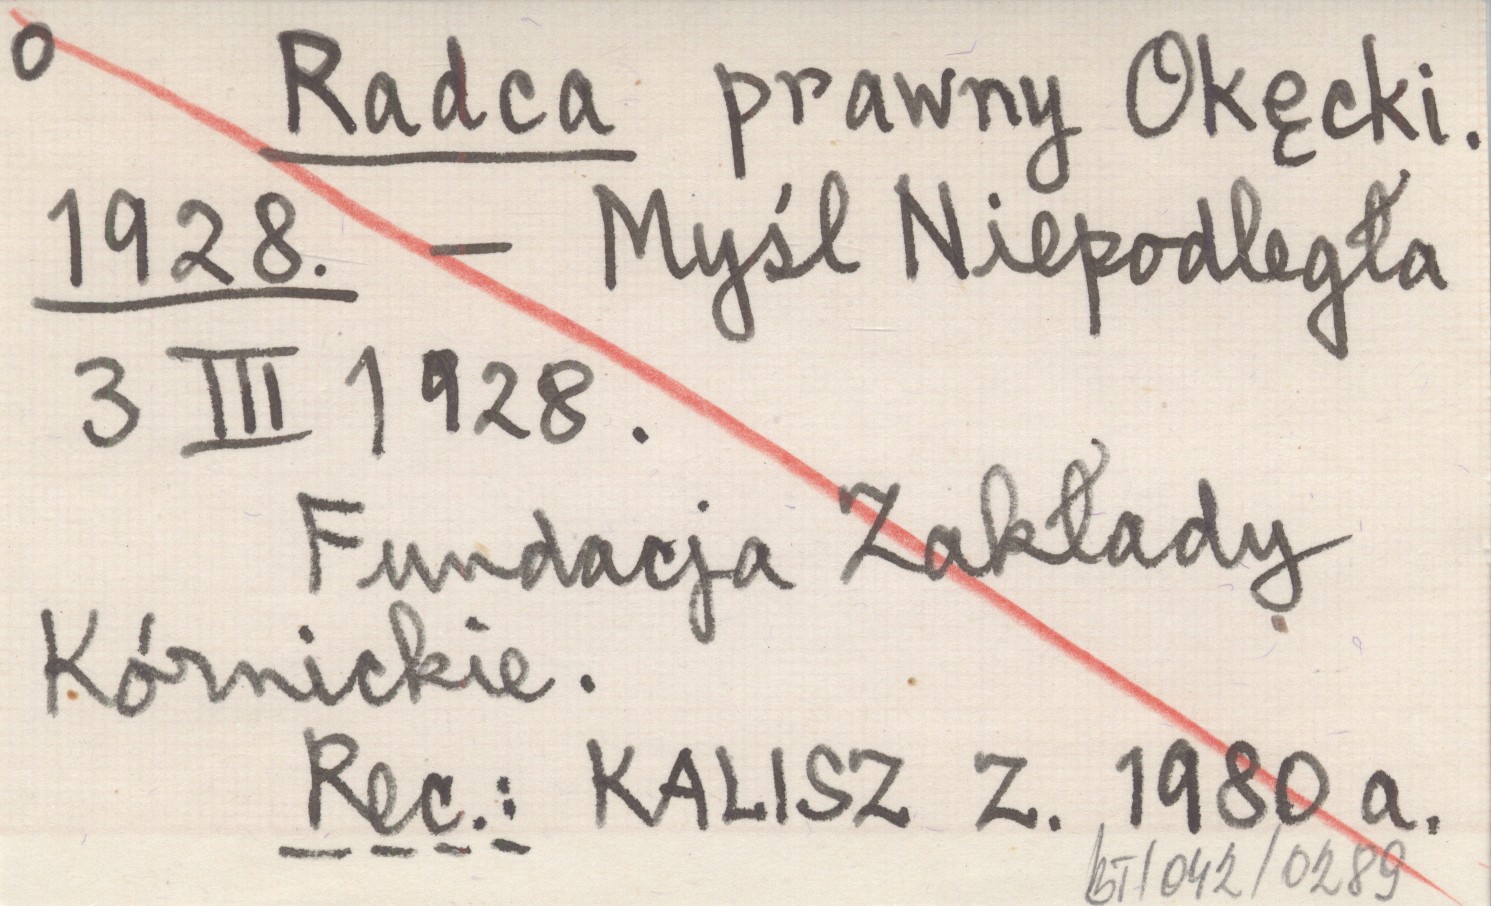 o Radca prawny Okęcki.
1928. — Myśl Niepodległa
3 III 1928.
Fundacja Zakłady
Kórnickie.
Rec.: KALISZ Z. 1980 a.
BT/042/0289